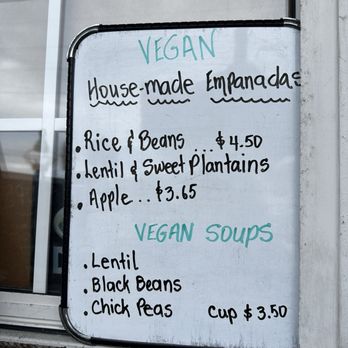 VEGAN
House-made Empanadas
• Rice & Beans ... $4.50
• Lentil & Sweet Plantains
• Apple .. $3.65
VEGAN SOUPS
• Lentil
• Black Beans
• Chick Peas Cup $3.50